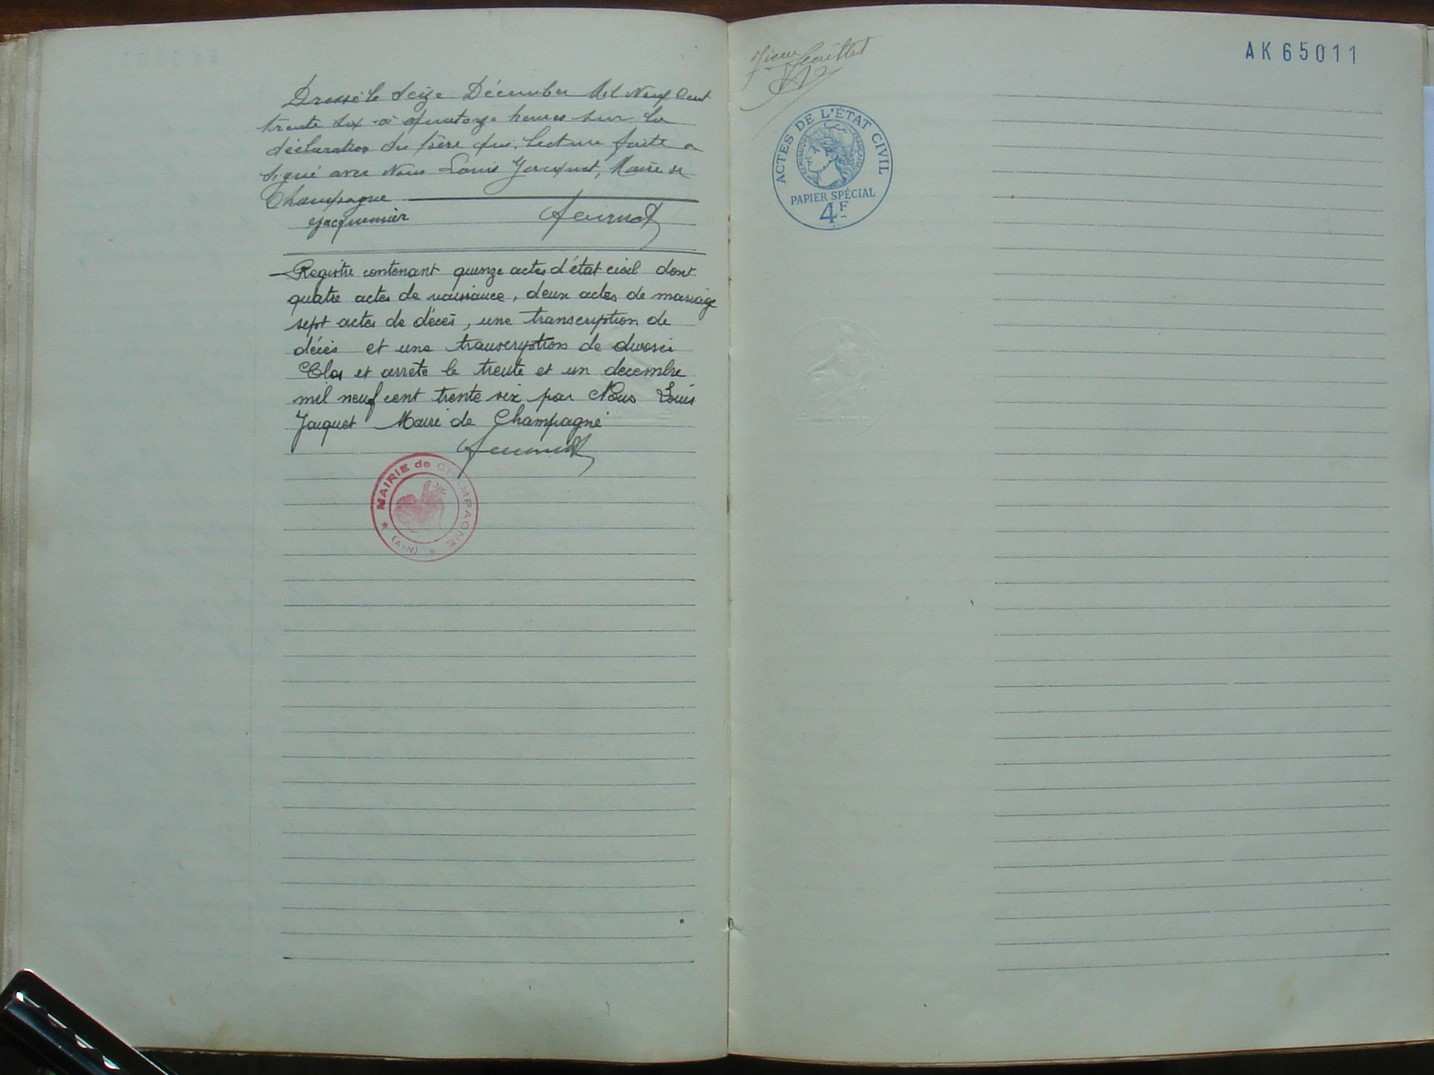 Dressé le Seize Décembre Mil Neuf Cent
trente six à quatorze heures sur la
déclaration du père qui, lecture faite a
signé avec Nous Louis Jacquet, Maire de
Champagne
Jacquemier
Registre contenant quinze actes d'état civil dont
quatre actes de naissance, deux actes de mariage
sept actes de décès, une transcription de
décès et une transcription de divorce
Clos et arrêté le trente et un decembre
mil neuf cent trente six par Nous Louis
Jacquet Maire de Champagne
MAIRIE de CHAMPAGNE
(AIN)
AK65011
ACTES DE L'ÉTAT CIVIL
PAPIER SPÉCIAL
4F